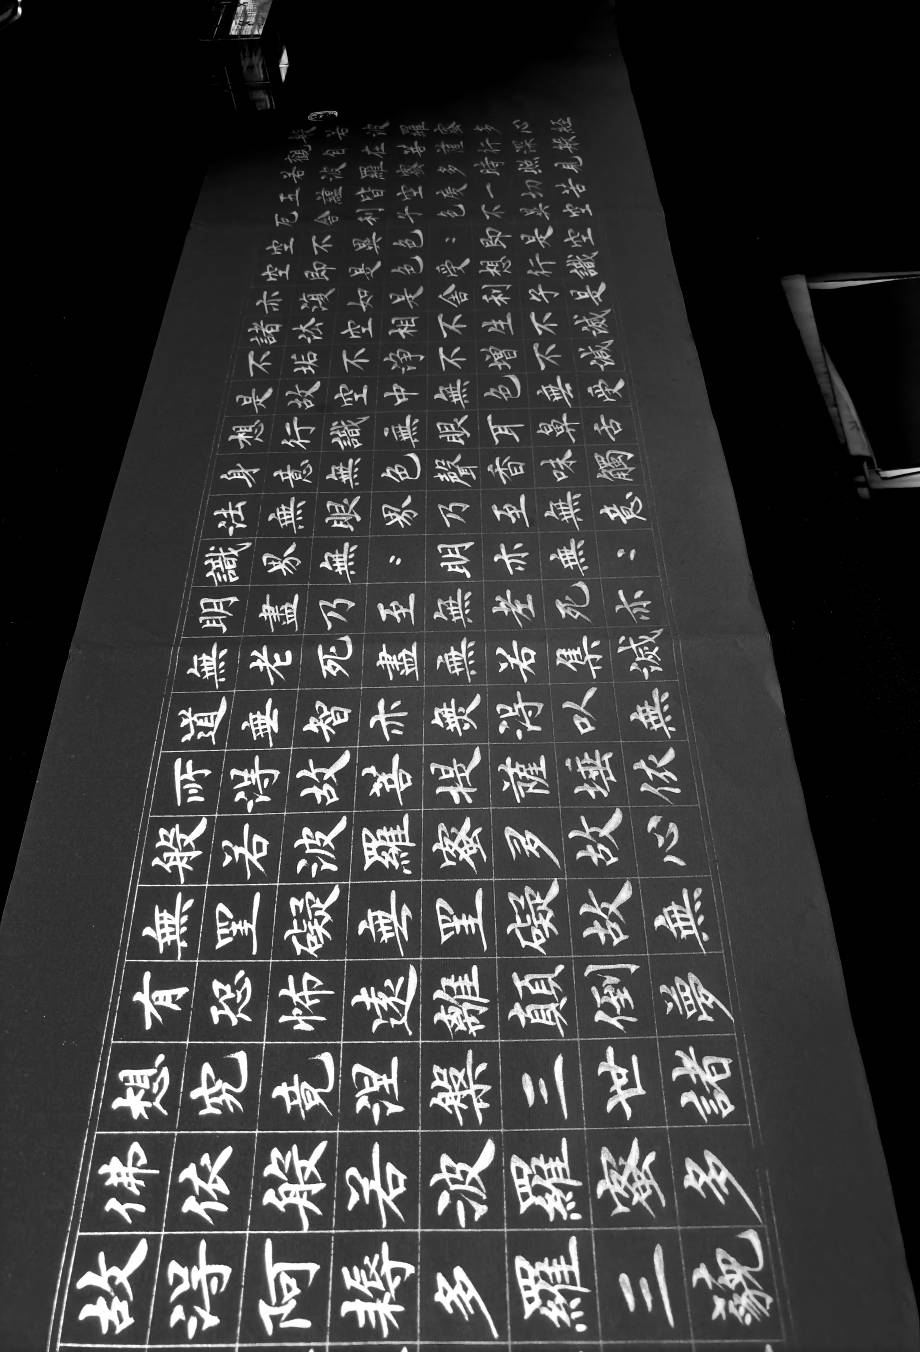 般若波羅蜜多心經
觀自在菩薩行深般
若波羅蜜多時照見
五蘊皆空度一切苦
厄舍利子色不異空
空不異色〻即是空
空即是色受想行識
亦復如是舍利子是
諸法空相不生不滅
不垢不淨不增不減
是故空中無色無受
想行識無眼耳鼻舌
身意無色聲香味觸
法無眼界乃至無意
識界無〻明亦無〻
明盡乃至無老死亦
無老死盡無苦集滅
道無智亦無得以無
所得故菩提薩埵依
般若波羅蜜多故心
無罣礙無罣礙故無
有恐怖遠離顛倒夢
想究竟涅槃三世諸
佛依般若波羅蜜多
故得阿耨多羅三藐